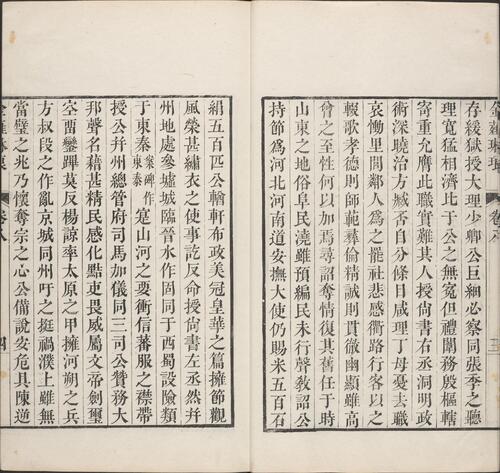 存緩獄授大理少卿公巨細必察同張季之聽
理寬猛相濟比于公之無冤但禮闈務殷樞轄
寄重允膺此職實難其人授尚書右丞洞明政
術深曉治方臧否自分條目咸理丁母憂去職
哀慟里閭鄰人為之罷社悲感衢路行客以之
輟歌孝德則師範彝倫精誠則貫徹幽顯雖高
曾之至性何以加焉尋詔奪情復其舊任于時
山東之地俗阜民澆雖預編民未行聲敎詔公
持節為河北河南道安撫大使仍賜米五百石
絹五百匹公輶軒布政美冠皇華之篇擁節觀
風榮甚繡衣之使事訖反命授尚書左丞然幷
州地處參墟城臨晉水作固同于西蜀設險類
于東秦案碑作東泰寔山河之要衝信蕃服之襟帶
授公幷州總管府司馬加儀同三司公贊務大
邦聲名藉甚精民感化黠吏畏威屬文帝劍璽
空畱鑾蹕莫反楊諒率太原之甲擁河朔之兵
方叔段之作亂京城同州吁之挺禍濮上雖無
當璧之兆乃懷奪宗之心公備說安危具陳逆
卷八
三
卷八
四